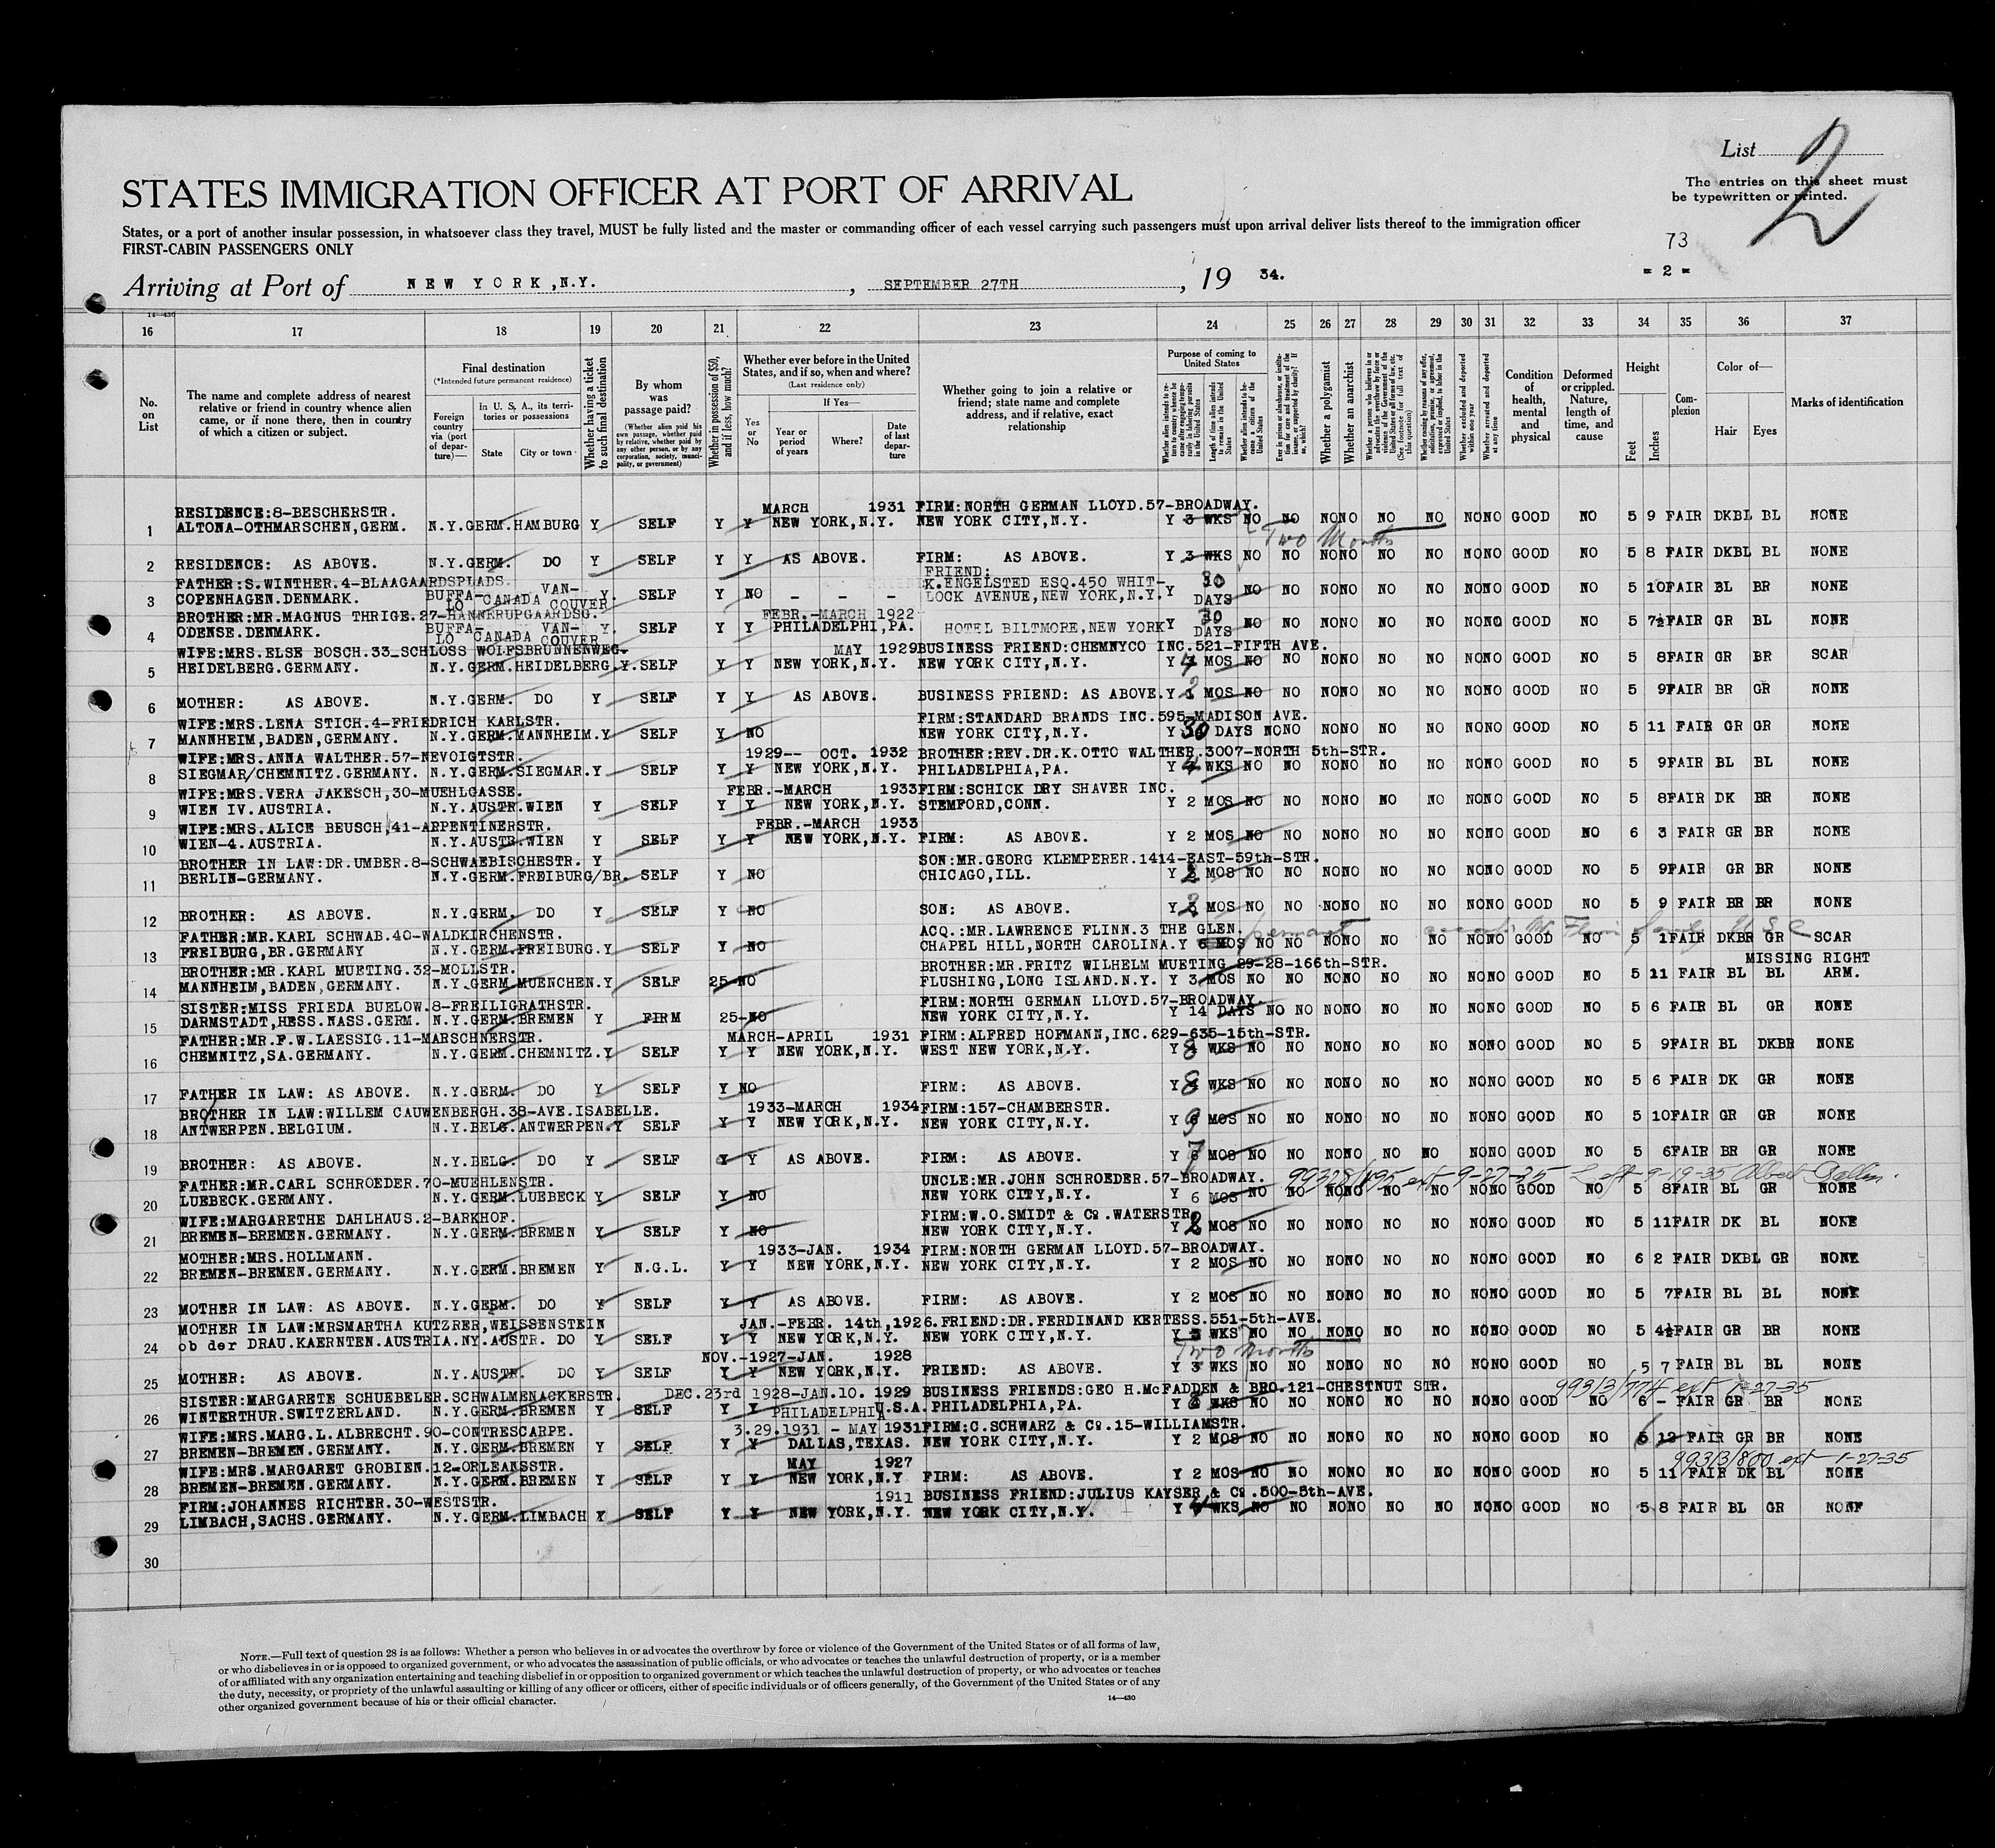 List 2
STATES IMMIGRATION OFFICER AT PORT OF ARRIVAL
The entries on this sheet must
be typewritten or printed.
States, or a port of another insular possession, in whatsoever class they travel, MUST be fully listed and the master or commanding officer of each vessel carrying such passengers must upon arrival deliver lists thereof to the immigration officer
FIRST-CABIN PASSENGERS ONLY
73
= 2 =
Arriving at Port of NEW YORK, N.Y. , SEPTEMBER 27TH , 19 34.
14—430
16 17 18 19 20 21 22 23 24 25 26 27 28 29 30 31 32 33 34 35 36 37
No. on List
The name and complete address of nearest relative or friend in country whence alien came, or if none there, then in country of which a citizen or subject.
Final destination
(*Intended future permanent residence)
Foreign country via (port of departure)—
In U. S. A., its territories or possessions
State City or town
Whether having a ticket to such final destination
By whom was passage paid?
(Whether alien paid his own passage, whether paid by relative, whether paid by any other person, or by any corporation, society, municipality, or government)
Whether in possession of $50, and if less, how much?
Whether ever before in the United States, and if so, when and where?
(Last residence only)
If Yes—
Yes or No
Year or period of years
Where?
Date of last departure
Whether going to join a relative or friend; state name and complete address, and if relative, exact relationship
Purpose of coming to United States
Length of time alien intends to remain in the United States
Whether alien intends to become a citizen of the United States
Whether a polygamist
Whether an anarchist
(See footnote for full text of this question)
Whether excluded and deported within one year
Whether arrested and deported at any time
Condition of health, mental and physical
Deformed or crippled. Nature, length of time, and cause
Height
Feet Inches
Complexion
Color of—
Hair Eyes
Marks of identification
RESIDENCE:8-BESCHERSTR. MARCH 1931 FIRM:NORTH GERMAN LLOYD.57-BROADWAY.
1 ALTONA-OTHMARSCHEN,GERM. N.Y.GERM.HAMBURG Y SELF Y Y NEW YORK,N.Y. NEW YORK CITY,N.Y. Y 3 WKS NO NO NONO NO NO NONO GOOD NO 5 9 FAIR DKBL BL NONE
Two Months
2 RESIDENCE: AS ABOVE. N.Y.GERM. DO Y SELF Y Y AS ABOVE. FIRM: AS ABOVE. Y 3 WKS NO NO NONO NO NO NONO GOOD NO 5 8 FAIR DKBL BL NONE
FATHER:S.WINTHER.4-BLAAGAARDSPLADS. FRIEND:
3 COPENHAGEN.DENMARK. BUFFALO CANADA VANCOUVER Y. SELF Y NO - - - K.ENGELSTED ESQ.450 WHITLOCK AVENUE,NEW YORK,N.Y. Y 30 DAYS NO NO NONO NO NO NONO GOOD NO 5 10FAIR BL BR NONE
BROTHER:MR.MAGNUS THRIGE.27-HANNERUPGAARDSG. FEBR.-MARCH 1922
4 ODENSE.DENMARK. BUFFALO CANADA VANCOUVER Y. SELF Y Y PHILADELPHI,PA. HOTEL BILTMORE,NEW YORK Y 30 DAYS NO NO NONO NO NO NONO GOOD NO 5 7½FAIR GR BL NONE
WIFE:MRS.ELSE BOSCH.33_SCHLOSS WOLFSBRUNNENWEG. MAY 1929 BUSINESS FRIEND:CHEMNYCO INC.521-FIFTH AVE.
5 HEIDELBERG.GERMANY. N.Y.GERM.HEIDELBERG.Y. SELF Y Y NEW YORK,N.Y. NEW YORK CITY,N.Y. Y MOS NO NO NONO NO NO NONO GOOD NO 5 8FAIR GR BR SCAR
6 MOTHER: AS ABOVE. N.Y.GERM. DO Y SELF Y Y AS ABOVE. BUSINESS FRIEND: AS ABOVE. Y MOS NO NO NONO NO NO NONO GOOD NO 5 9FAIR BR GR NONE
WIFE:MRS.LENA STICH.4-FRIEDRICH KARLSTR. FIRM:STANDARD BRANDS INC.595-MADISON AVE.
7 MANNHEIM,BADEN,GERMANY. N.Y.GERM.MANNHEIM.Y SELF Y NO NEW YORK CITY,N.Y. Y 30 DAYS NONO NO NONO NO NO NONO GOOD NO 5 11 FAIR GR GR NONE
WIFE:MRS.ANNA WALTHER.57-NEVOIGTSTR. 1929-- OCT. 1932 BROTHER:REV.DR.K.OTTO WALTHER.3007-NORTH 5th-STR.
8 SIEGMAR/CHEMNITZ.GERMANY. N.Y.GERM.SIEGMAR.Y SELF Y Y NEW YORK,N.Y. PHILADELPHIA,PA. Y 4 WKS NO NO NONO NO NO NONO GOOD NO 5 9FAIR BL BL NONE
WIFE:MRS.VERA JAKESCH,30-MUEHLGASSE. FEBR.-MARCH 1933 FIRM:SCHICK DRY SHAVER INC.
9 WIEN IV.AUSTRIA. N.Y.AUSTR.WIEN Y SELF Y Y NEW YORK,N.Y. STEMFORD,CONN. Y 2 MOS NO NO NONO NO NO NONO GOOD NO 5 8FAIR DK BR NONE
WIFE:MRS.ALICE BEUSCH,41-ARPENTINERSTR. FEBR.-MARCH 1933
10 WIEN-4.AUSTRIA. N.Y.AUSTR.WIEN Y SELF Y Y NEW YORK,N.Y. FIRM: AS ABOVE. Y 2 MOS NO NO NONO NO NO NONO GOOD NO 6 3 FAIR GR BR NONE
BROTHER IN LAW:DR.UMBER.8-SCHWAEBISCHESTR. Y SON:MR.GEORG KLEMPERER.1414-EAST-59th-STR.
11 BERLIN-GERMANY. N.Y.GERM.FREIBURG/BR. SELF Y NO CHICAGO,ILL. Y 2 MOS NO NO NONO NO NO NONO GOOD NO 5 9FAIR GR BR NONE
12 BROTHER: AS ABOVE. N.Y.GERM. DO Y SELF Y NO SON: AS ABOVE. Y 2 MOS NO NO NONO NO NO NONO GOOD NO 5 9 FAIR BR BR NONE
FATHER:MR.KARL SCHWAB.40-WALDKIRCHENSTR. ACQ.:MR.LAWRENCE FLINN.3 THE GLEN. permanent
13 FREIBURG,BR.GERMANY N.Y.GERM.FREIBURG.Y SELF Y NO CHAPEL HILL,NORTH CAROLINA. Y 6 MOS NO NO NONO NO NO NONO GOOD NO 5 1FAIR DKBR GR SCAR
BROTHER:MR.KARL MUETING.32-MOLLSTR. BROTHER:MR.FRITZ WILHELM MUETING 29-28-166th-STR. MISSING RIGHT
14 MANNHEIM,BADEN,GERMANY. N.Y.GERM.MUENCHEN.Y SELF 25-NO FLUSHING,LONG ISLAND.N.Y. Y 3 MOS NO NO NONO NO NO NONO GOOD NO 5 11 FAIR BL BL ARM.
SISTER:MISS FRIEDA BUELOW.8-FREILIGRATHSTR. FIRM:NORTH GERMAN LLOYD.57-BROADWAY.
15 DARMSTADT,HESS.NASS.GERM. N.Y.GERM.BREMEN Y FIRM 25-NO NEW YORK CITY,N.Y. Y 14 DAYS NO NO NONO NO NO NONO GOOD NO 5 6 FAIR BL GR NONE
FATHER:MR.F.W.LAESSIG.11-MARSCHNERSTR. MARCH-APRIL 1931 FIRM:ALFRED HOFMANN,INC.629-635-15th-STR.
16 CHEMNITZ,SA.GERMANY. N.Y.GERM.CHEMNITZ.Y SELF Y Y NEW YORK,N.Y. WEST NEW YORK,N.Y. Y 8 WKS NO NO NONO NO NO NONO GOOD NO 5 9FAIR BL DKBR NONE
17 FATHER IN LAW: AS ABOVE. N.Y.GERM. DO Y SELF Y NO FIRM: AS ABOVE. Y 8 WKS NO NO NONO NO NO NONO GOOD NO 5 6 FAIR DK GR NONE
BROTHER IN LAW:WILLEM CAUWENBERGH.38-AVE.ISABELLE. 1933-MARCH 1934 FIRM:157-CHAMBERSTR.
18 ANTWERPEN.BELGIUM. N.Y.BELG.ANTWERPEN.Y SELF Y Y NEW YORK,N.Y. NEW YORK CITY,N.Y. Y 9 MOS NO NO NONO NO NO NONO GOOD NO 5 10FAIR GR GR NONE
19 BROTHER: AS ABOVE. N.Y.BELG. DO Y SELF Y Y AS ABOVE. FIRM: AS ABOVE. Y MOS NO NO NONO NO NO NONO GOOD NO 5 6FAIR BR GR NONE
FATHER:MR.CARL SCHROEDER.70-MUEHLENSTR. UNCLE:MR.JOHN SCHROEDER.57-BROADWAY. 99328/195 ext 9-27-35 Left 9-19-35 Albert Ballin.
20 LUEBECK.GERMANY. N.Y.GERM.LUEBECK Y SELF Y NO NEW YORK CITY,N.Y. Y 6 MOS NO NO NONO NO NO NONO GOOD NO 5 8FAIR BL GR NONE
WIFE:MARGARETHE DAHLHAUS.2-BARKHOF. FIRM:W.O.SMIDT & Co.WATERSTR.
21 BREMEN-BREMEN.GERMANY. N.Y.GERM.BREMEN Y SELF Y NO NEW YORK CITY,N.Y. Y 2 MOS NO NO NONO NO NO NONO GOOD NO 5 11FAIR DK BL NONE
MOTHER:MRS.HOLLMANN. 1933-JAN. 1934 FIRM:NORTH GERMAN LLOYD.57-BROADWAY.
22 BREMEN-BREMEN.GERMANY. N.Y.GERM.BREMEN Y N.G.L. Y Y NEW YORK,N.Y. NEW YORK CITY,N.Y. Y 2 MOS NO NO NONO NO NO NONO GOOD NO 6 2 FAIR DKBL GR NONE
23 MOTHER IN LAW: AS ABOVE. N.Y.GERM. DO Y SELF Y Y AS ABOVE. FIRM: AS ABOVE. Y 2 MOS NO NO NONO NO NO NONO GOOD NO 5 7FAIR BL BL NONE
MOTHER IN LAW:MRSMARTHA KUTZRER,WEISSENSTEIN JAN.-FEBR. 14th,1926. FRIEND:DR.FERDINAND KERTESS.551-5th-AVE.
24 ob der DRAU.KAERNTEN.AUSTRIA.NY.AUSTR. DO Y SELF Y Y NEW YORK,N.Y. NEW YORK CITY,N.Y. Y 3 WKS NO NO NONO NO NO NONO GOOD NO 5 4½FAIR GR BR NONE
Two Months
NOV.-1927-JAN. 1928
25 MOTHER: AS ABOVE. N.Y.AUSTR. DO Y SELF Y Y NEW YORK,N.Y. FRIEND: AS ABOVE. Y 3 WKS NO NO NONO NO NO NONO GOOD NO 5 7 FAIR BL BL NONE
SISTER:MARGARETE SCHUEBELER.SCHWALMENACKERSTR. DEC.23rd 1928-JAN.10. 1929 BUSINESS FRIENDS:GEO H.McFADDEN & BRO.121-CHESTNUT STR. 99313/774 ext 1-27-35
26 WINTERTHUR.SWITZERLAND. N.Y.GERM.BREMEN Y SELF Y Y PHILADELPHIA U.S.A. PHILADELPHIA,PA. Y WKS NO NO NONO NO NO NONO GOOD NO 6 - FAIR GR BR NONE
WIFE:MRS.MARG.L.ALBRECHT.90-CONTRESCARPE. 3.29.1931 - MAY 1931 FIRM:C.SCHWARZ & Co.15-WILLIAMSTR.
27 BREMEN-BREMEN.GERMANY. N.Y.GERM.BREMEN Y SELF Y Y DALLAS,TEXAS. NEW YORK CITY,N.Y. Y 2 MOS NO NO NONO NO NO NONO GOOD NO 6 12 FAIR GR BR NONE
WIFE:MRS.MARGARET GROBIEN.12-ORLEANSSTR. MAY 1927 99313/800 ext 1-27-35
28 BREMEN-BREMEN.GERMANY. N.Y.GERM.BREMEN Y SELF Y Y NEW YORK,N.Y FIRM: AS ABOVE. Y 2 MOS NO NO NONO NO NO NONO GOOD NO 5 11 FAIR DK BL NONE
FIRM:JOHANNES RICHTER.30-WESTSTR. 1911 BUSINESS FRIEND:JULIUS KAYSER & Co.500-5th-AVE.
29 LIMBACH,SACHS.GERMANY. N.Y.GERM.LIMBACH Y SELF Y Y NEW YORK,N.Y. NEW YORK CITY,N.Y. Y 4 WKS NO NO NONO NO NO NONO GOOD NO 5 8 FAIR BL GR NONE
30
NOTE.—Full text of question 28 is as follows: Whether a person who believes in or advocates the overthrow by force or violence of the Government of the United States or of all forms of law,
or who disbelieves in or is opposed to organized government, or who advocates the assassination of public officials, or who advocates or teaches the unlawful destruction of property, or is a member
of or affiliated with any organization entertaining and teaching disbelief in or opposition to organized government or which teaches the unlawful destruction of property, or who advocates or teaches
the duty, necessity, or propriety of the unlawful assaulting or killing of any officer or officers, either of specific individuals or of officers generally, of the Government of the United States or of any
other organized government because of his or their official character.
14—430